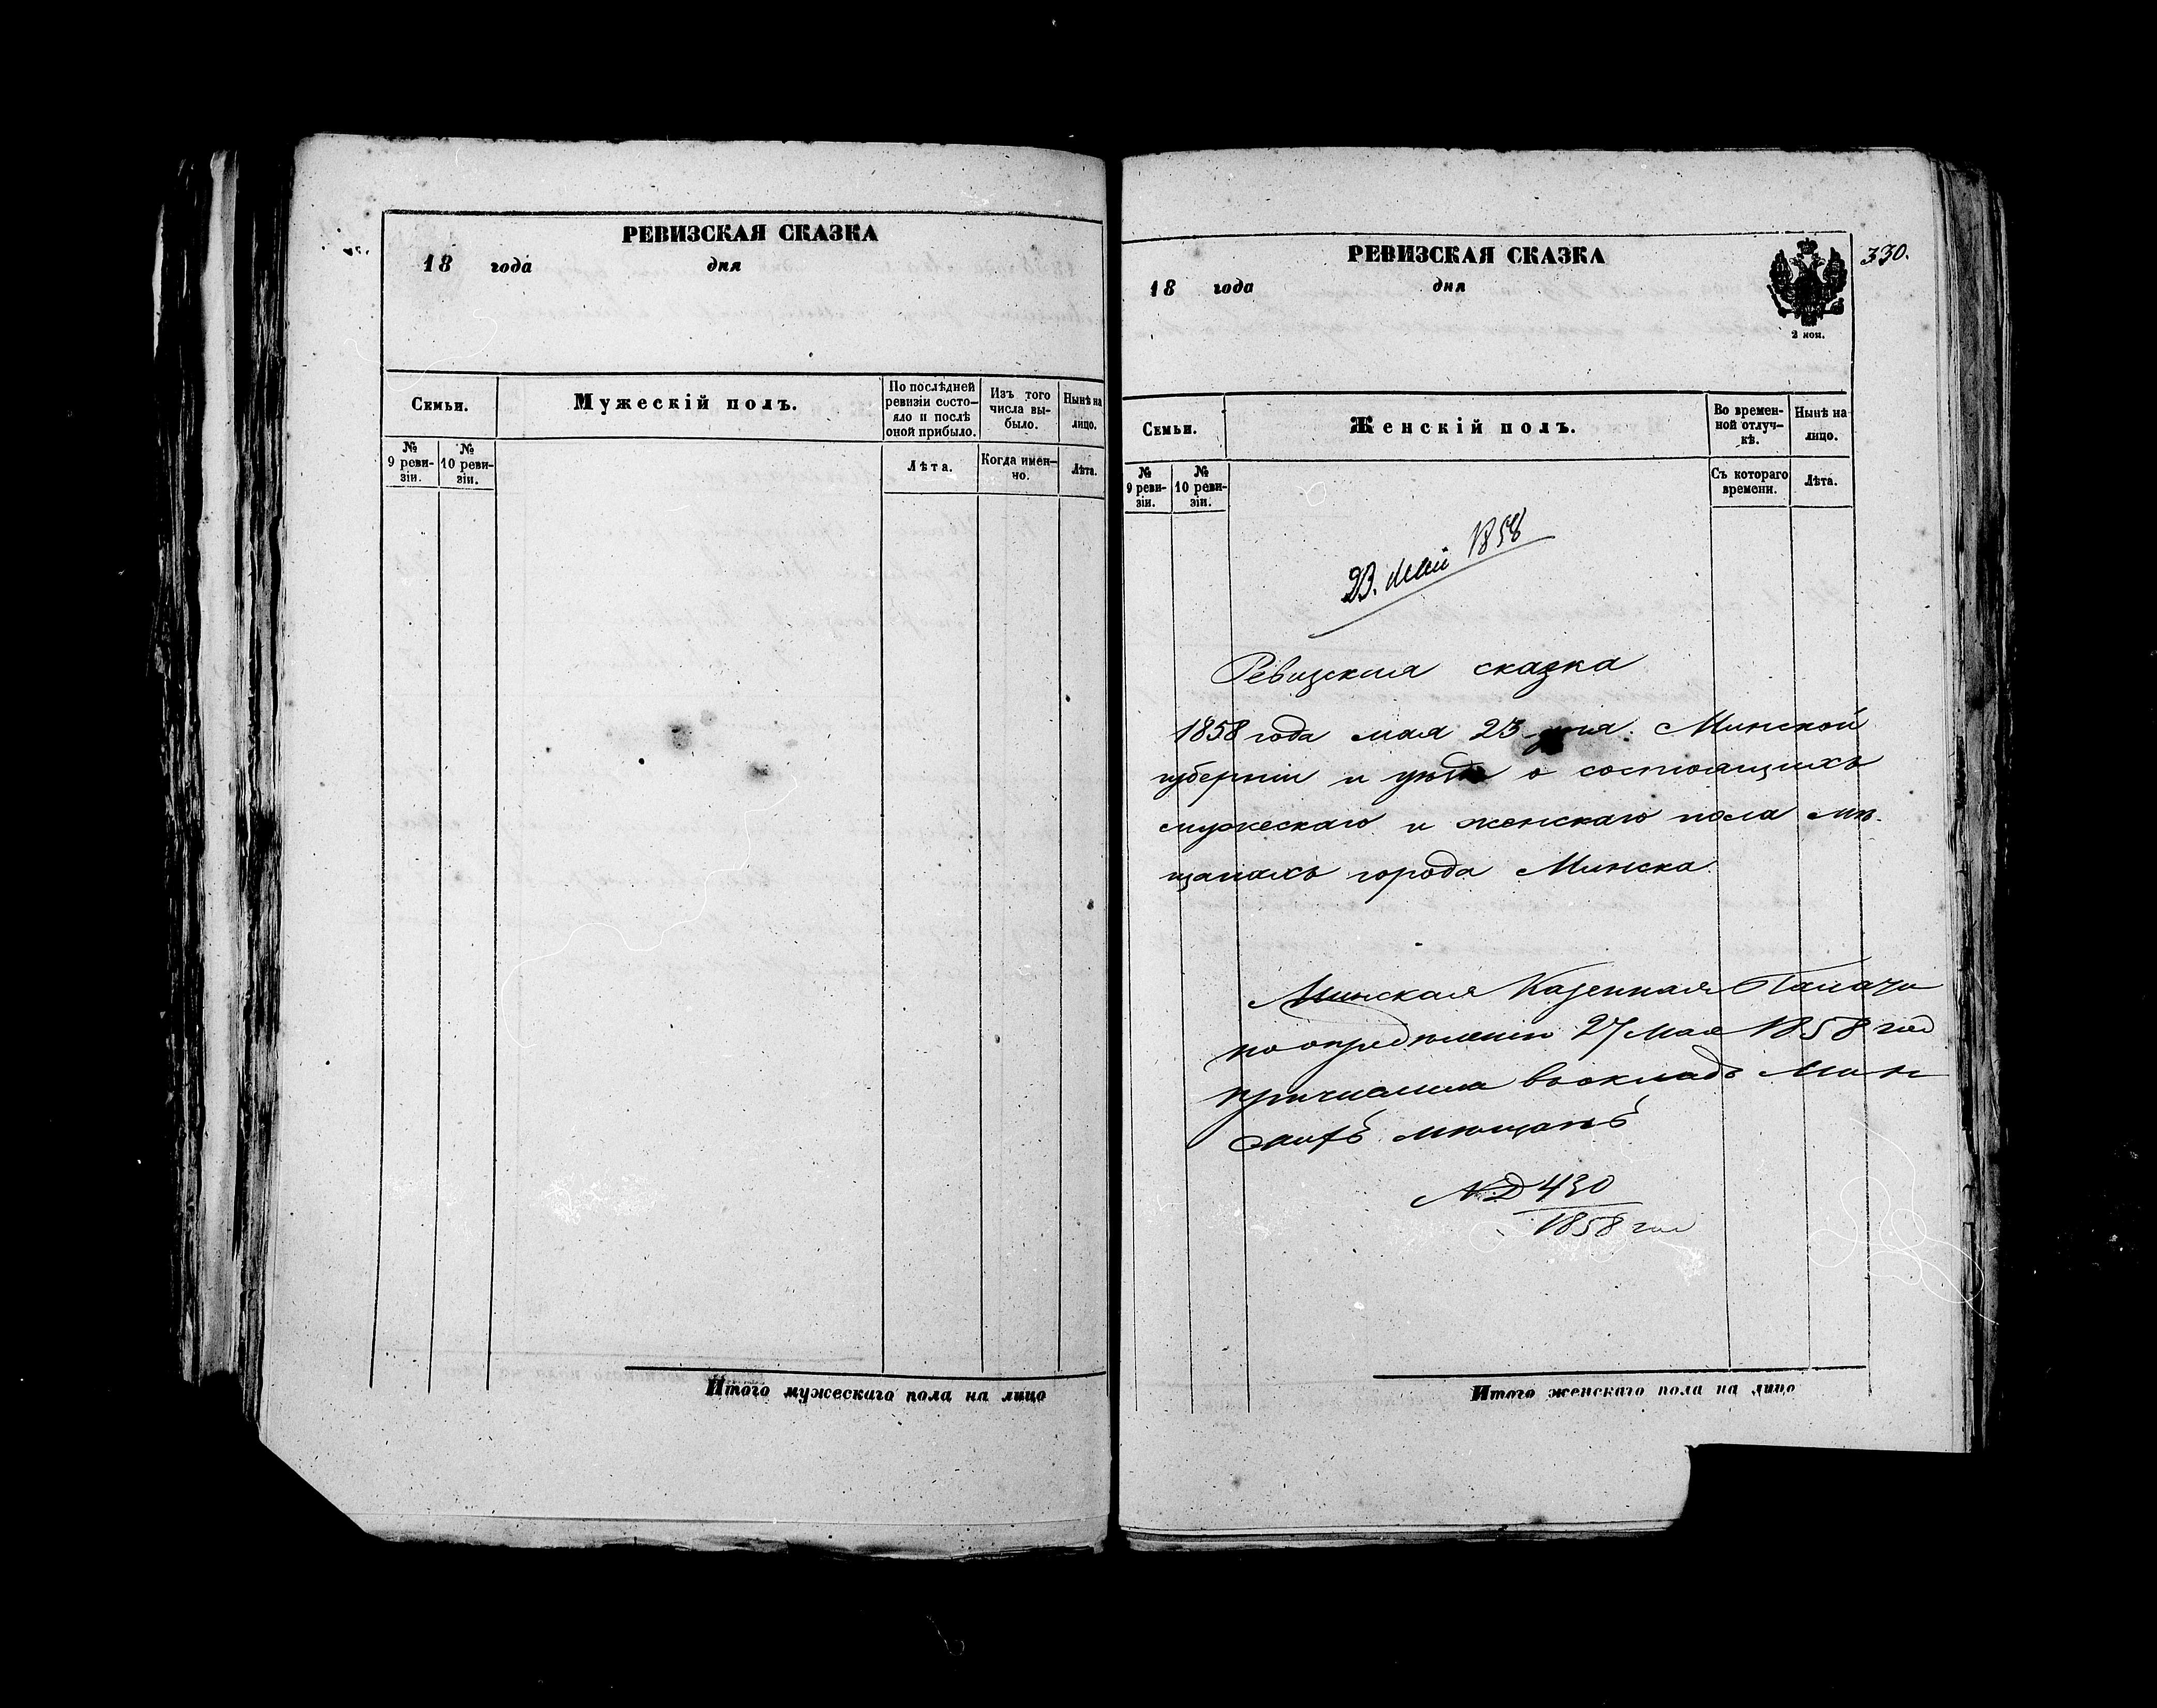 РЕВИЗСКАЯ СКАЗКА
18 года дня
Семьи.
Мужескій полъ.
По послѣдней
ревизіи состо-
яло и послѣ
оной прибыло.
Изъ того
числа вы-
было.
Нынѣ на
лицо.
№
9 реви-
зіи.
№
10 реви-
зіи.
Лѣта.
Когда имен-
но.
Лѣта.
Итого мужескаго пола на лицо
РЕВИЗСКАЯ СКАЗКА
18 года дня
2 коп.
330.
Семьи.
Женскій полъ.
Во времен-
ной отлуч-
кѣ.
Нынѣ на
лицо.
№
9 реви-
зіи.
№
10 реви-
зіи.
Съ котораго
времени.
Лѣта.
23. Май 1858
Ревизская сказка
1858 года мая 23 дня. Минской
губерніи и уѣзда о состоящихъ
мужескаго и женскаго пола мѣ-
щанахъ города Минска.
Минская Казенная Палата
по опредѣленію 27 Мая 1858 год
причислила въ окладъ Мин
скихъ мѣщанъ
№ Д 430
1858 год
Итого женскаго пола на лицо